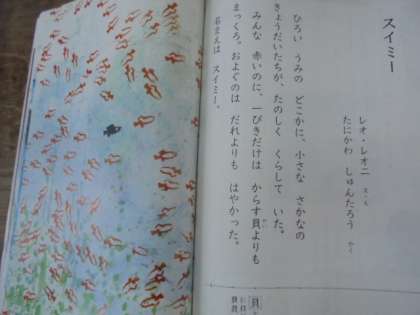 スイミー
レオ・レオニ さく・え
たにかわ しゅんたろう やく
ひろい うみの どこかに、小さな さかなの
きょうだいたちが、たのしく くらして いた。
みんな 赤いのに、一ぴきだけは からす貝よりも
まっくろ。およぐのは だれよりも はやかった。
名まえは スイミー。
貝